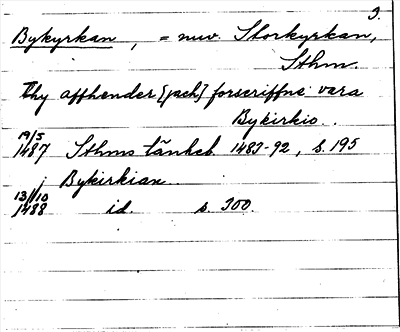 3.
Bykyrkan, = nuv. Storkyrkan,
Sthm.
Thy affhender [jach] forscriffne vara
Bykirkio.
19/5
1487 Sthms tänkeb. 1483-92, s. 195
i Bykirkian
13/10
1488 id. s. 300.